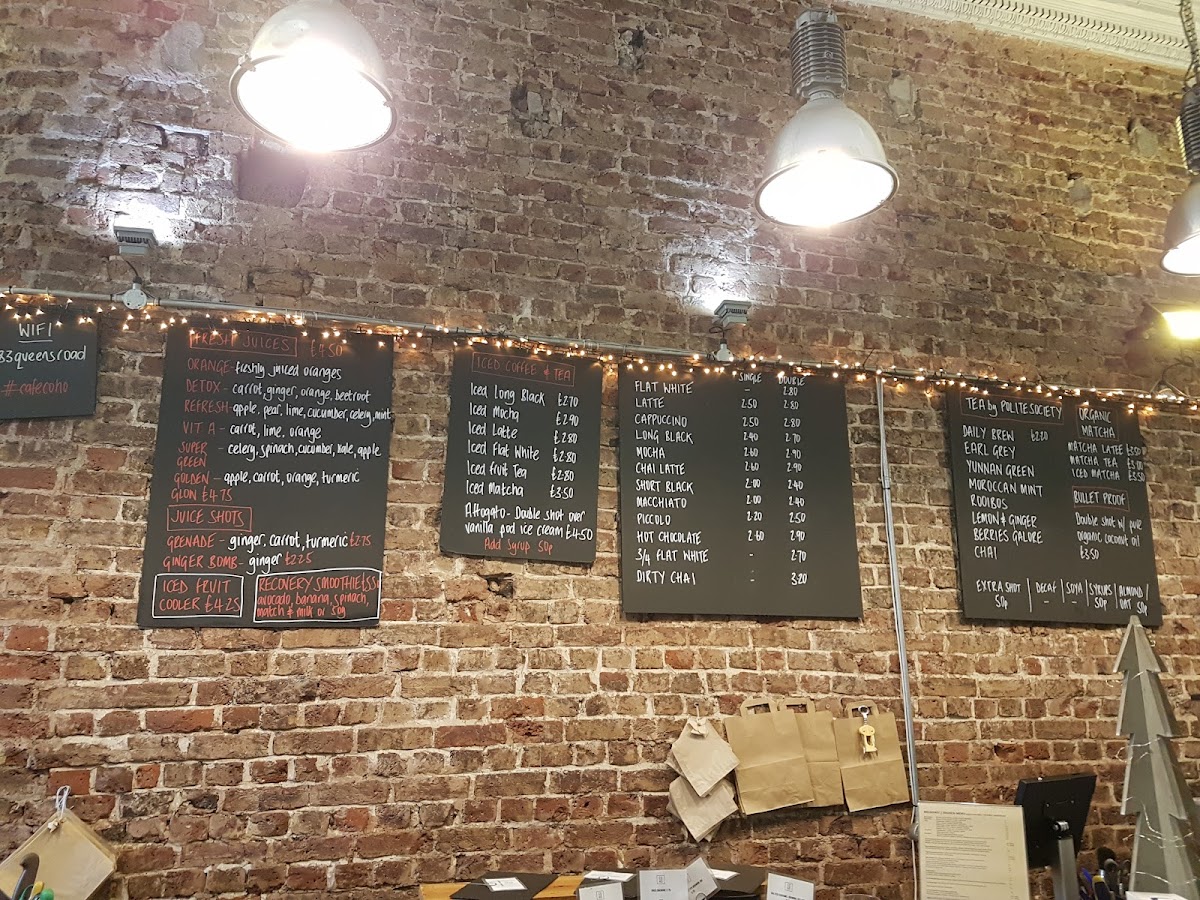 WIFI
83queensroad
#cafecoho
FRESH JUICES £4.50
ORANGE- freshly juiced oranges
DETOX - carrot, ginger, orange, beetroot
REFRESH- apple, pear, lime, cucumber, celery, mint
VIT A - carrot, lime, orange
SUPER - celery, spinach, cucumber, kale, apple
GREEN
GOLDEN - apple, carrot, orange, turmeric
GLOW £4.75
JUICE SHOTS
GRENADE - ginger, carrot, turmeric £2.75
GINGER BOMB- ginger £2.25
ICED FRUIT
COOLER £4.25
RECOVERY SMOOTHIE(£5)
avocado, banana, spinach,
match & milk or soy
ICED COFFEE & TEA
Iced Long Black £2.70
Iced Mocha £2.90
Iced Latte £2.80
Iced Flat White £2.80
Iced Fruit Tea £2.80
Iced Matcha £3.50
Affogato- Double shot over
vanilla pod ice cream £4.50
Add Syrup 50p
SINGLE DOUBLE
FLAT WHITE - 2.80
LATTE 2.50 2.80
CAPPUCCINO 2.50 2.80
LONG BLACK 2.40 2.70
MOCHA 2.60 2.90
CHAI LATTE 2.60 2.90
SHORT BLACK 2.00 2.40
MACCHIATO 2.00 2.40
PICCOLO 2.20 2.50
HOT CHOCOLATE 2.60 2.90
3/4 FLAT WHITE - 2.70
DIRTY CHAI - 3.20
TEA by POLITE SOCIETY
DAILY BREW £2.20
EARL GREY
YUNNAN GREEN
MOROCCAN MINT
ROOIBOS
LEMON & GINGER
BERRIES GALORE
CHAI
ORGANIC
MATCHA
MATCHA LATTE £3.50
MATCHA TEA £3.00
ICED MATCHA £3.50
BULLET PROOF
Double shot w/ pure
organic coconut oil
£3.50
EXTRA SHOT | DECAF | SOYA | SYRUPS | ALMOND /
50p - - 50p OAT 50p